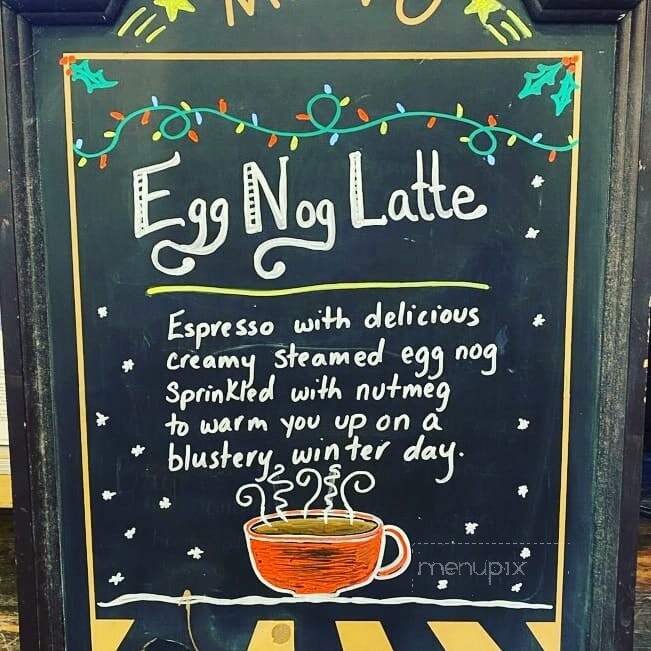 Egg Nog Latte
Espresso with delicious
creamy steamed egg nog
Sprinkled with nutmeg
to warm you up on a
blustery winter day.
menupix